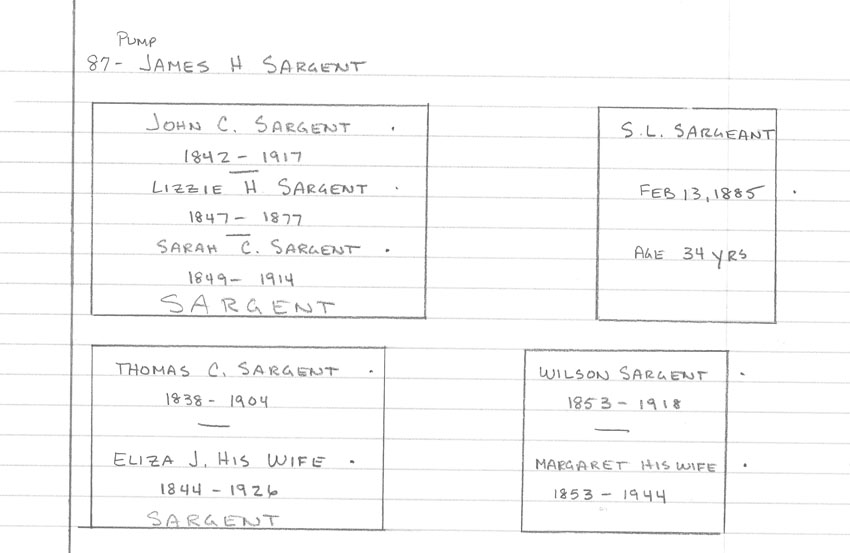 PUMP
87- JAMES H SARGENT
JOHN C. SARGENT .
1842 - 1917
LIZZIE H SARGENT .
1847 - 1877
SARAH C. SARGENT .
1849 - 1914
SARGENT
S.L. SARGEANT
FEB 13, 1885 .
AGE 34 YRS
THOMAS C. SARGENT .
1838 - 1904
—
ELIZA J. HIS WIFE .
1844 - 1926
SARGENT
WILSON SARGENT .
1853 - 1918
—
MARGARET HIS WIFE .
1853 - 1944